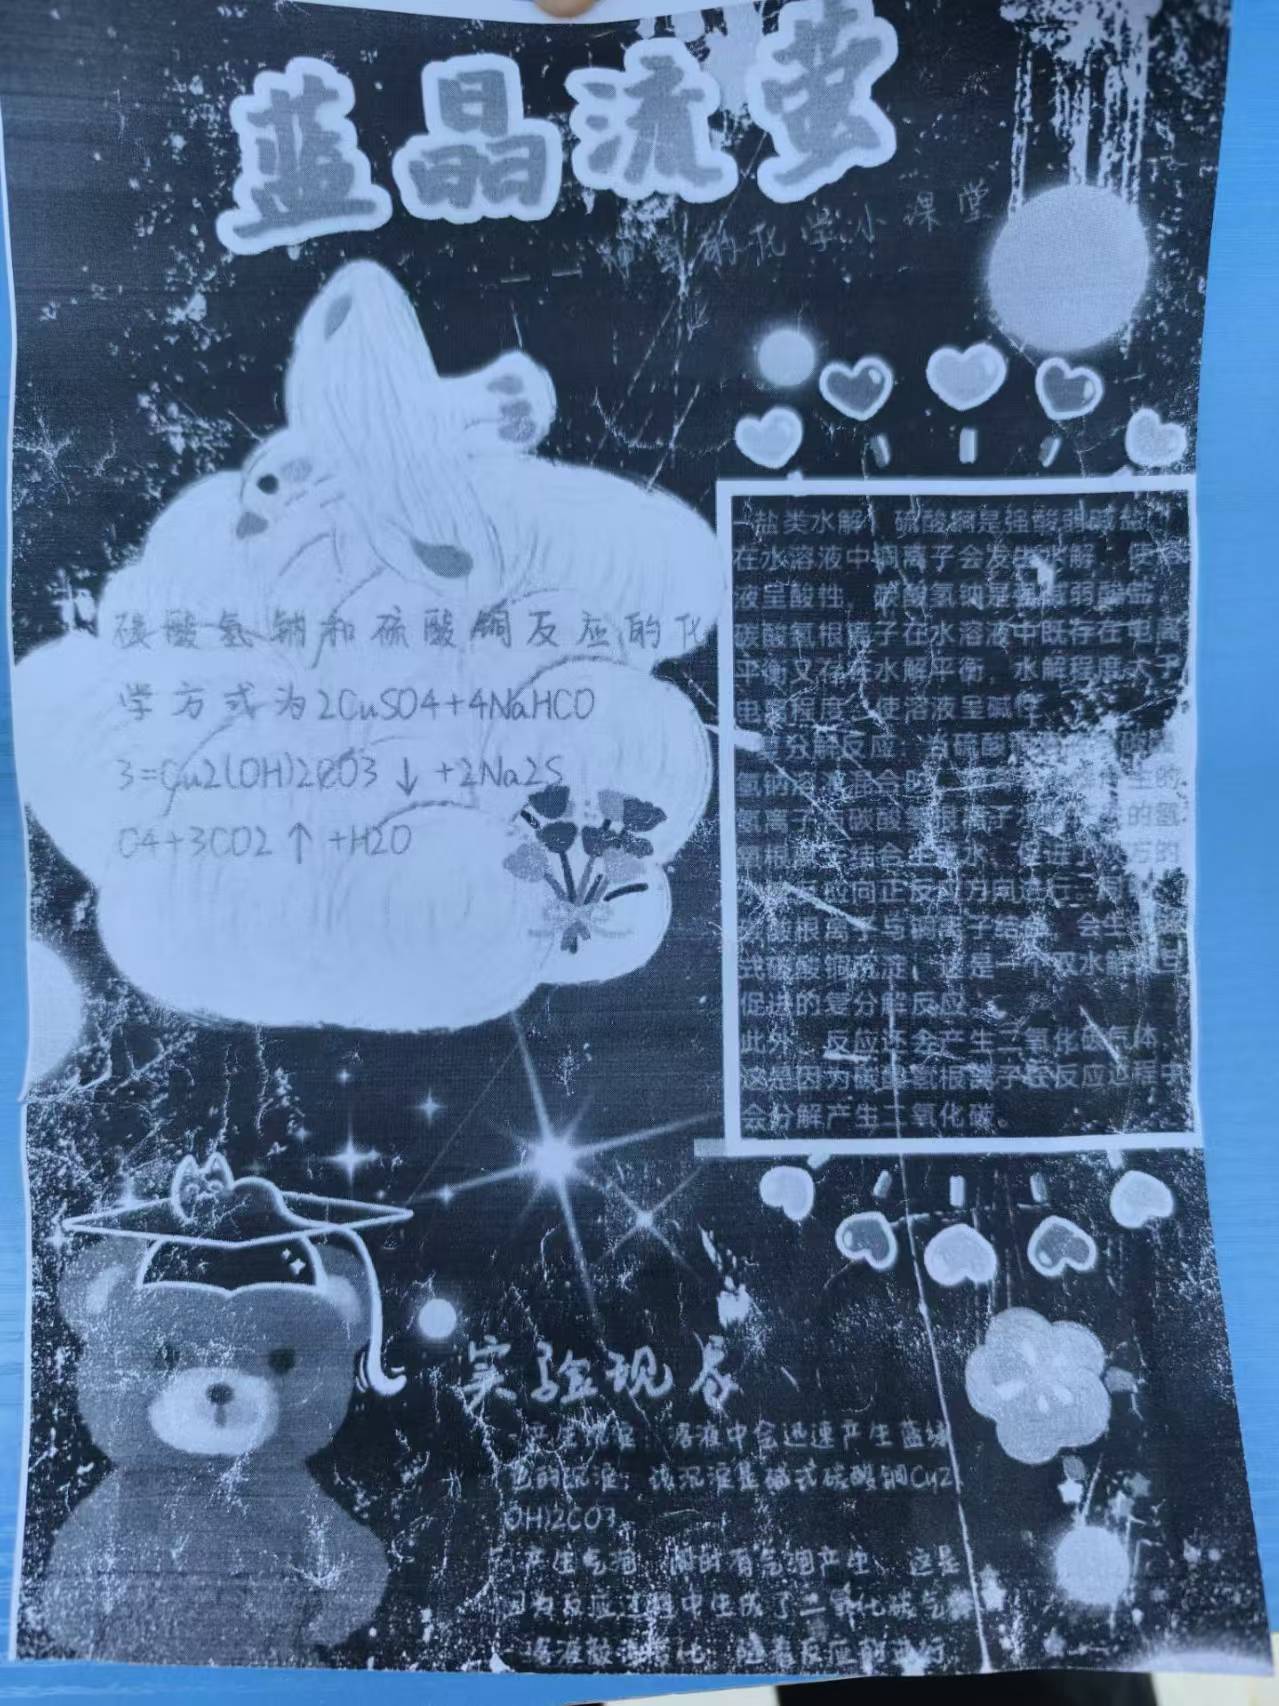 蓝晶流萤
的化学小课堂
碳酸氢钠和硫酸铜反应的化
学方式为2CuSO4+4NaHCO
3=Cu2(OH)2CO3↓+2Na2S
O4+3CO2↑+H2O
盐类水解：硫酸铜是强酸弱碱盐
在水溶液中铜离子会发生水解，使
液呈酸性，碳酸氢钠是强碱弱酸盐
碳酸氢根离子在水溶液中既存在电离
平衡又存在水解平衡，水解程度大于
电离程度，使溶液呈碱性
分解反应：当硫酸
氢钠溶液混合时，生的
氢离子与碳酸氢根离子水的氢
氧根离子结合生成水，促进了方的
向正反应方向进行，同
碳酸根离子与铜离子结合，会生
式碳酸铜沉淀，这是一个双水解
促进的复分解反应。
此外，反应还会产生二氧化碳气体，
这是因为碳酸氢根离子在反应过程中
会分解产生二氧化碳。
实验现象
-产生沉淀：溶液中会迅速产生蓝绿
色的沉淀，该沉淀是碱式碳酸铜Cu2
OH)2CO3
-产生气泡：同时有气泡产生，这是
因为反应过程中生成了二氧化碳气
-溶液酸变化：随着反应的进行